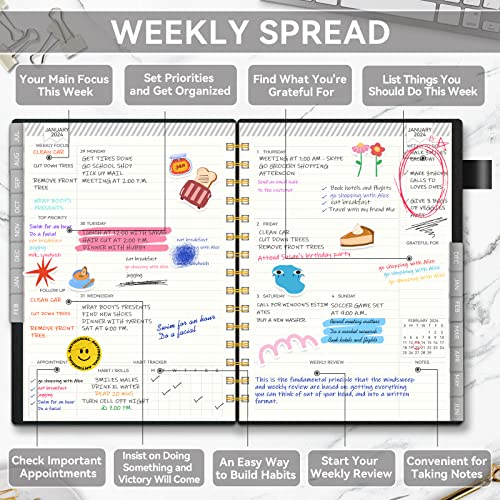 WEEKLY SPREAD
Your Main Focus
This Week
Set Priorities
and Get Organized
Find What You're
Grateful For
List Things You
Should Do This Week
JANUARY
2024
WEEKLY FOCUS
CLEAN CAR
CUT DOWN TREES
REMOVE FRONT
TREE
WRAY BOOT'S
PRESENTS
TOP PRIORITY
Swim for an hour
Do a facial
eat breakfast
go shopping with Alice
jogging
FOLLOW UP
CLEAN CAR
CUT DOWN TREES
REMOVE FRONT
TREES
APPOINTMENT
go shopping with Alice
eat breakfast
jogging
Swim for an hour
Do a facial
29 MONDAY
GET TIRES DONE
GO SCHOOL SHOP
PICK UP MAIL
MEETING AT 2:00 P.M.
30 TUESDAY
LUNCH AT 12:00 WITH SARAH
HAIR CUT AT 2:00 P.M.
DINNER WITH HUBBY
eat breakfast
go shopping with Alice
jogging
31 WEDNESDAY
WRAY BOOT'S PRESENTS
FIND NEW SHOES
DINNER WITH PARENTS
SAT AT 6:00 P.M.
Swim for an hour
Do a facial
HABIT / SKILLS
HABIT TRACKER
3 MILES WALKS
DRINK WATER
READ 20 MINS
TURN CELL OFF NIGHT
1 THURSDAY
MEETING AT 9:00 AM - SKYPE
GO GROCERY SHOPPING
Send an email
to the customer
Book hotels and flights
go shopping with Alice
eat breakfast
Travel with my friend Mia
2 FRIDAY
CLEAN CAR
CUT DOWN TREES
REMOVE FRONT TREES
Attend Susan's birthday party
3 SATURDAY
CALL FOR WINDOW'S ESTIMATES
BUY A NEW WASHER
4 SUNDAY
SOCCER GAME SET
AT 9:00 A.M.
Book hotels and flights
WEEKLY REVIEW
This is the fundamental principle that the mindsweep
and weekly review are based on: getting everything
you can think of out of your head, and into a
written format.
JANUARY
2024
MAKE 3 PHONE
CALLS TO
LOVED ONES
GIVE 3 BAGS
OF VEGGIES
AWAY
GRATEFUL FOR
eat breakfast
go shopping with Alice
go shopping with Alice
FEBRUARY 2024
NOTES
JUL
AUG
SEP
OCT
NOV
DEC
JAN
FEB
DEC
JAN
FEB
MAR
APR
MAY
JUN
Check Important
Appointments
Insist on Doing
Something and
Victory Will Come
An Easy Way
to Build Habits
Start Your
Weekly Review
Convenient for
Taking Notes